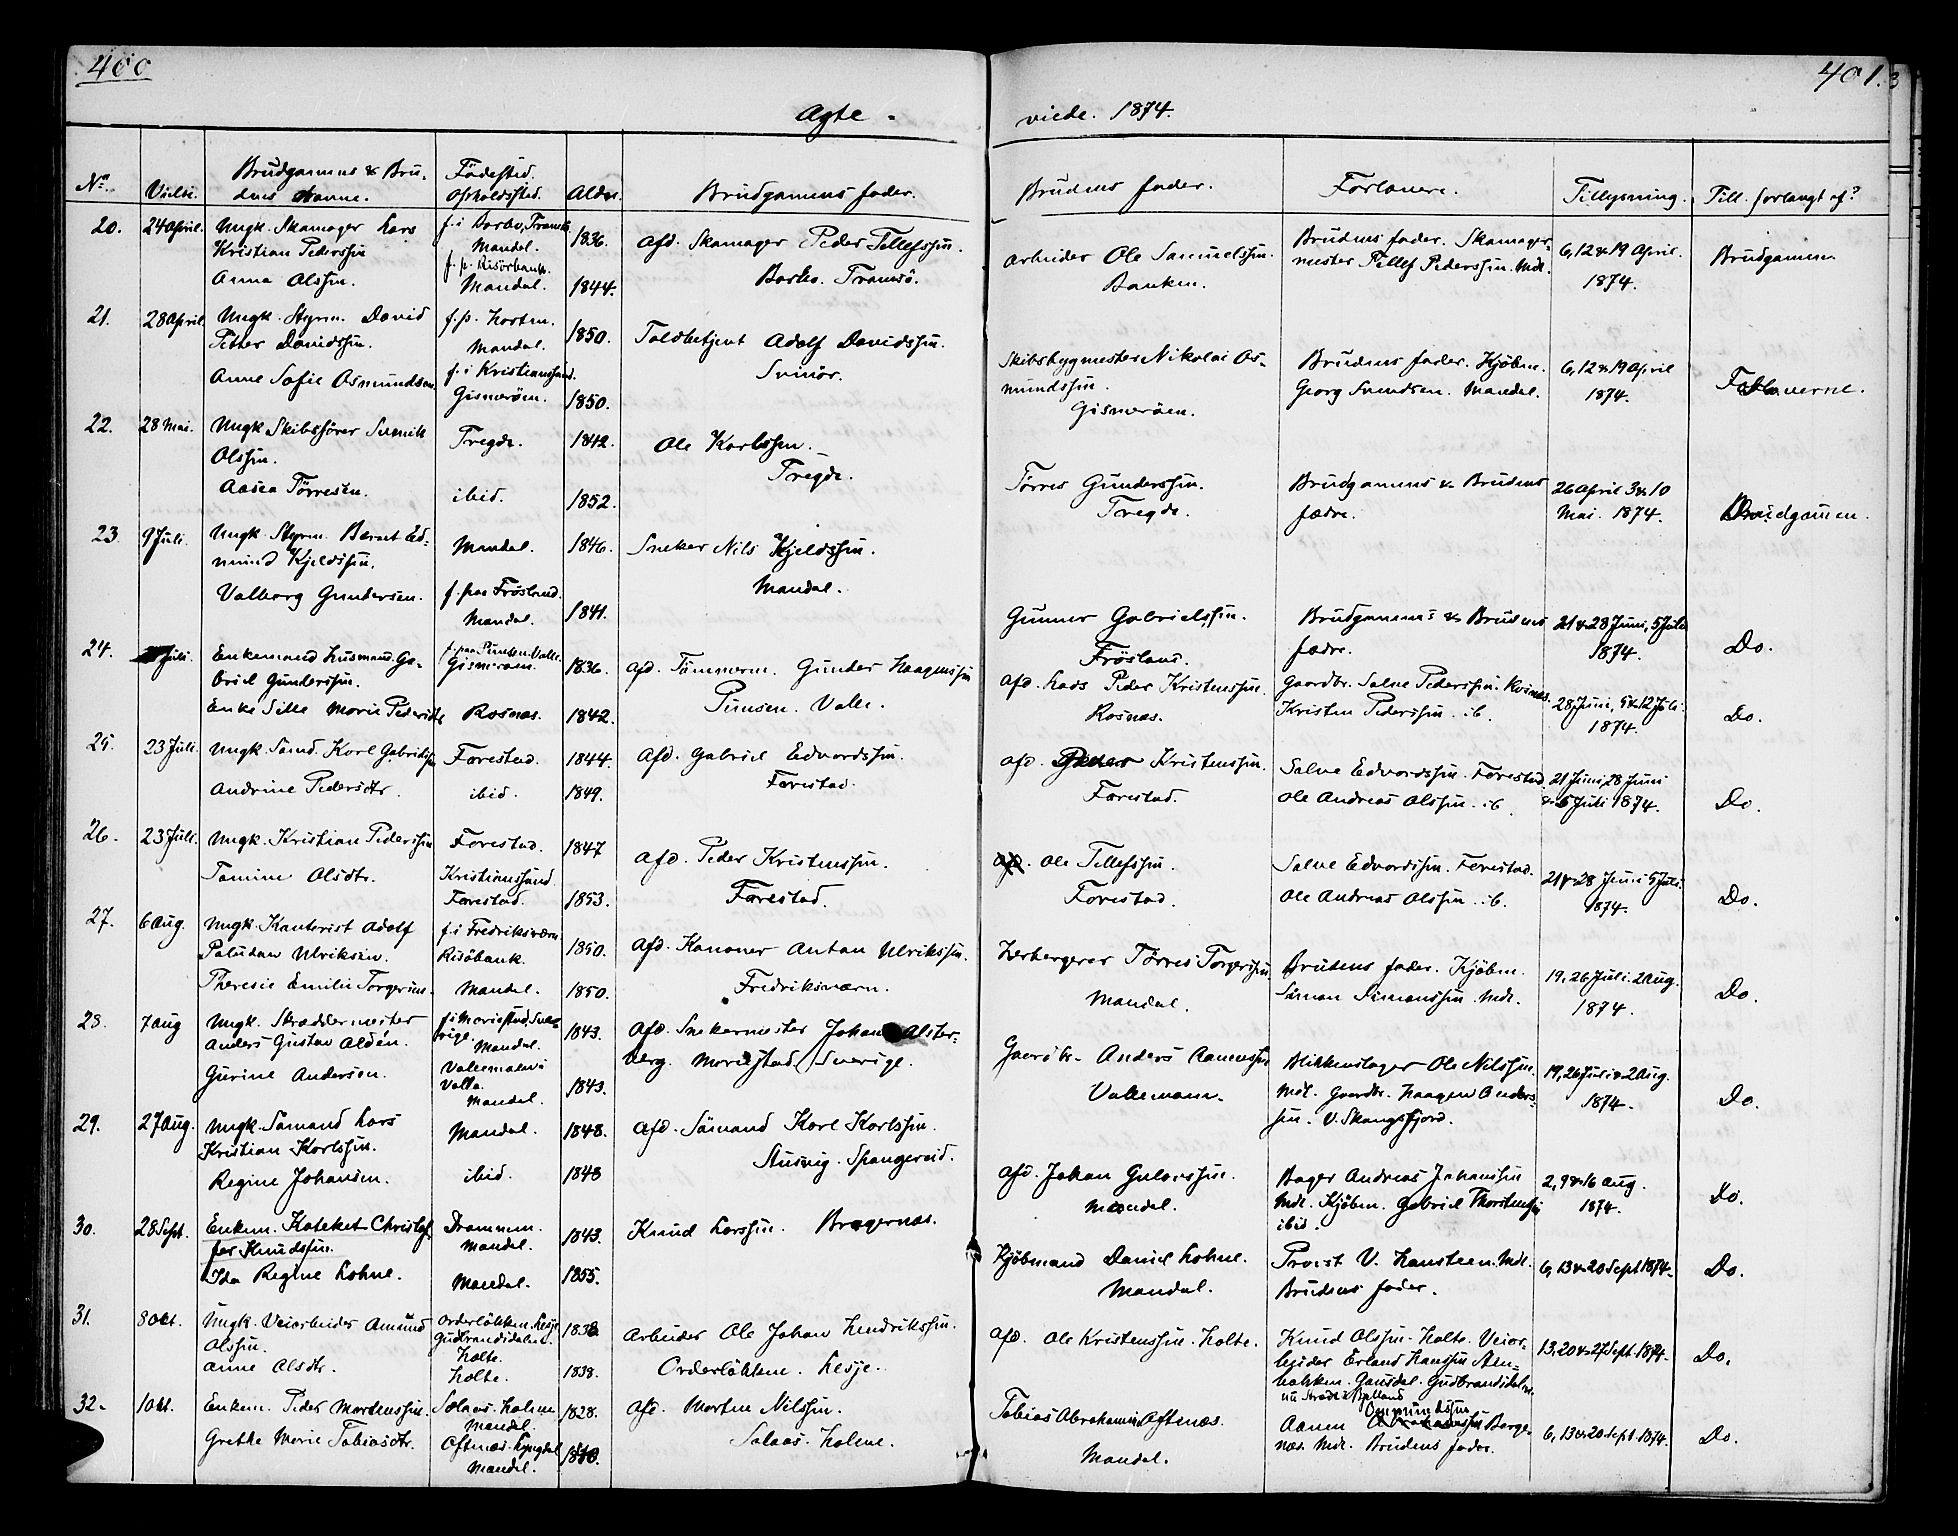 400
401.
Ægte-
viede. 1874.
No.
Vielse.
Brudgommens & Bru-
dens Navne.
Fødested.
Opholdssted.
Alder.
Brudgommens fader.
Brudens fader.
Forlovere.
Tillysning.
Till. forlangt af?
20.
24 April.
Ungk. Skomager Lars
Kristian Pederssen
Anna Olssen.
Mandal.
f. p. Risörbank.
Mandal.
1836.
1844.
Afd. Skomager Peder Tellefssen.
Tromsö.
Arbeider Ole Samuelssen.
Banken.
Brudens fader. Skomager-
mester Tellef Pederssen. Mdl.
6, 12 & 19 April.
1874.
Brudgommen.
21.
28 April.
Ungk. Styrm. David
Petter Davidssen.
Anne Sofie Osmundsen.
f. p. Horten.
Mandal.
f. i Kristianssand.
Gismeröen.
1850.
1850.
Toldbetjent Adolf Davidssen.
Svinör.
Skibsbygmester Nikolai Os-
mundssen.
Gismeröen.
Brudens fader. Kjøbm.
Georg Svendsen. Mandal.
6, 12 & 19 April
1874.
Forloverne.
22.
28 Mai.
Ungk Skibsfører
Olssen.
Aasea Törresen.
Tregde.
ibid.
1842.
1852.
Ole Karlssen.
Tregde.
Törres Gunderssen.
Tregde.
Brudgommens & Brudens
fædre.
26 April 3 & 10
Mai. 1874.
Brudgommen.
23.
9 Juli.
Ungk. Styrm. Bernt Ed-
mund Kjeldssen.
Valborg Gundersen.
Mandal.
f. paa Frösland.
Mandal.
1846.
1841.
Sneker Nils Kjeldssen.
Mandal.
Gunner Gabrielssen.
Frösland.
Brudgommens & Brudens
fædre.
21 & 28 Juni, 5 Juli
1874.
Do.
24.
Juli.
Enkemand Husmand Ga-
briel Gunderssen.
Enke Sille Marie Pedersdtr
Gismeröen.
Rosnæs.
1836.
1842.
Afd. Tömmerm. Gunder Haagenssen
Valle.
Afd. Lods Peder Kristenssen.
Rosnæs.
Gaardbr. Salve Pederssen. Rosnæs.
Kristen Pederssen. ib.
28 Juni, 5 & 12 Juli.
1874.
Do.
25.
23 Juli.
Ungk. Sömd. Karl Gabrielssen
Andrine Pedersdtr.
Farestad.
ibid.
1844.
1849.
Afd. Gabriel Edvardssen.
Farestad.
Afd. Peder Kristenssen.
Farestad.
Salve Edvardssen. Farestad.
Ole Andreas Olssen. ib.
21 Juni, 28 Juni
& 5 Juli 1874.
Do.
26.
23 Juli.
Ungk. Kristian Pederssen
Tomine Olsdtr.
Farestad.
Kristianssand.
Farestad.
1847
1853.
Afd. Peder Kristenssen.
Farestad.
Afd. Ole Tellefssen.
Farestad.
Salve Edvardssen. Farestad.
Ole Andreas Olssen. ib.
21 & 28 Juni 5 Juli.
1874.
Do.
27.
6 Aug.
Ungk. Kontorist Adolf
Paludan Ulriksen.
Theresie Emilie Torgersen.
f. i Fredriksværn
Risöbank.
Mandal.
1850.
1850.
Afd. Kanoner Anton Ulrikssen.
Fredriksværn.
Herbergerer Törres Torgerssen
Mandal.
Brudens fader. Kjøbm.
Simon Simonssen. Mdl.
19, 26 Juli. 2 Aug.
1874.
Do.
28.
7 Aug
Ungk. Skræddermester
Anders Gustav Aldén.
Gurine Andersen.
f. i Mariestad, Sve-
rige.
Mandal.
Vallemoen i
Valle.
Mandal.
1843.
1843.
Afd. Snekermester Johan Alster-
berg. Mariestad, Sverige.
Gaardbr. Anders Aanenssen
Vallemoen.
Blikkenslager Ole Nilssen.
Mdl. Gaardbr. Haagen Anders-
sen. V. Skogsfjord.
19, 26 Juli & 2 Aug.
1874.
Do.
29.
27 Aug.
Ungk. Sömand Lars
Kristian Karlssen.
Regine Johansen.
Mandal.
ibid.
1848.
1848
Afd. Sömand Karl Karlssen.
Stusvig. Spangereid.
Afd. Johan
Mandal.
Bager Andreas Johanssen
Mdl. Kjøbm. Gabriel Thorstenssen
ibid.
2, 9 & 16 Aug.
1874.
Do.
30.
28 Sept.
Enkem. Kateket Christof-
fer Knudssen.
Ida Regine Lohne.
Drammen.
Mandal.
Mandal.
1843.
1855.
Knud Larssen. Bragernæs.
Kjöbmand Daniel Lohne.
Mandal.
Provst V. Hansteen. Mdl.
Brudens fader.
6, 13 & 20 Sept 1874.
Do.
31.
8 Okt.
Ungk. Veiarbeider Amund
Olssen.
Anne Olsdtr.
Orderlökken. Lesje
Gudbrandsdalen.
Holte.
Holte.
1838.
1838.
Arbeider Ole Johan Hendrikssen.
Orderlökken. Lesje.
Afd. Ole Kristenssen. Holte.
Knud Olssen. Holte. Veiar-
beider Erland Hanssen Sten-
bakken. Gausdal. Gudbrandsdalen.
13, 20 & 27 Sept. 1874.
Do.
32.
1 Okt.
Enkem. Peder Mortenssen.
Grethe Marie Tobiasdtr.
Solaas. Holme
Mandal.
Oftenæs. Lyngdal
Mandal.
1828.
Afd. Morten Nilssen.
Solaas. Holme.
Tobias Abrahamsen Oftenæs.
Mandal.
Ommundssen
Aanen Abrahamssen Borge-
næs. Mdl. Brudens fader.
6, 13 & 20 Sept. 1874.
Do.